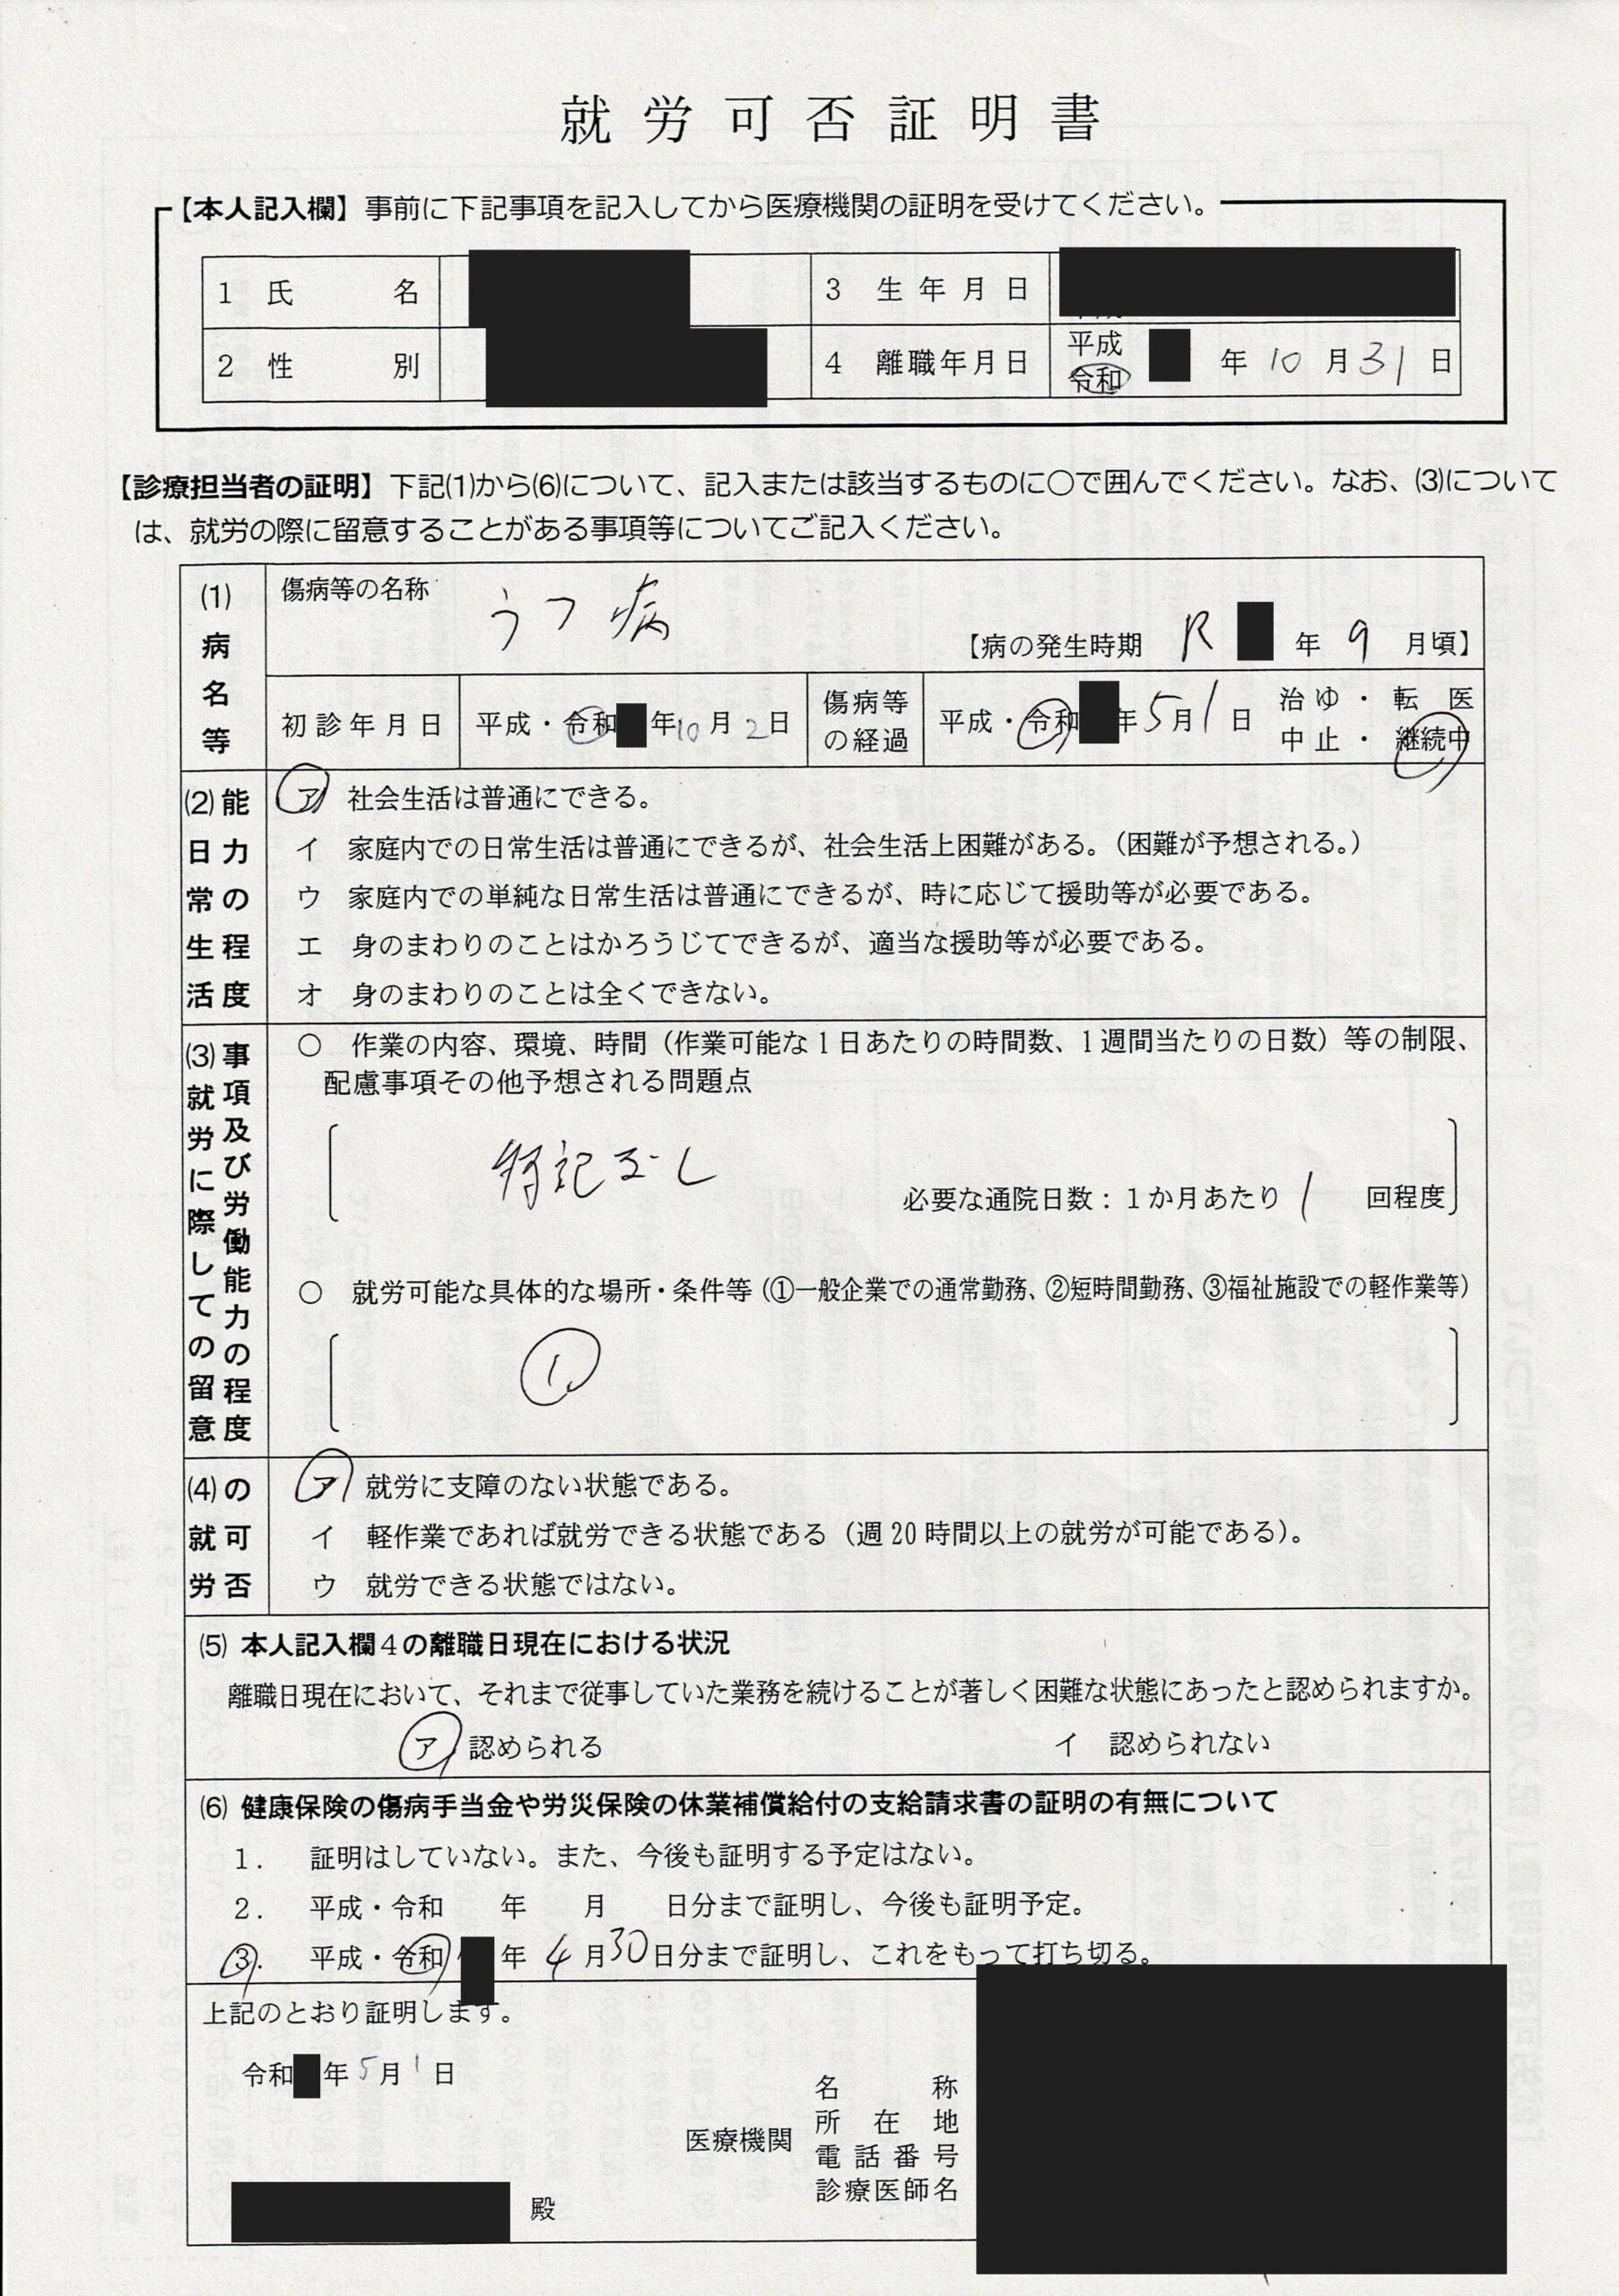 就労可否証明書
【本人記入欄】事前に下記事項を記入してから医療機関の証明を受けてください。
1 氏 名
3 生年月日
2 性 別
4 離職年月日 平成 令和 年 10 月 31 日
【診療担当者の証明】下記⑴から⑹について、記入または該当するものに○で囲んでください。なお、⑶について
は、就労の際に留意することがある事項等についてご記入ください。
⑴病名等
傷病等の名称 うつ病
【病の発生時期 R 年 9 月頃】
初診年月日 平成・令和 年 10 月 2 日
傷病等の経過 平成・令和 年 5 月 1 日 治ゆ・転医 中止・継続中
⑵日常生活能力の程度
ア 社会生活は普通にできる。
イ 家庭内での日常生活は普通にできるが、社会生活上困難がある。（困難が予想される。）
ウ 家庭内での単純な日常生活は普通にできるが、時に応じて援助等が必要である。
エ 身のまわりのことはかろうじてできるが、適当な援助等が必要である。
オ 身のまわりのことは全くできない。
⑶就労に際しての留意事項及び労働能力の程度
○ 作業の内容、環境、時間（作業可能な1日あたりの時間数、1週間当たりの日数）等の制限、
配慮事項その他予想される問題点
特記なし
必要な通院日数：1か月あたり 1 回程度
○ 就労可能な具体的な場所・条件等（①一般企業での通常勤務、②短時間勤務、③福祉施設での軽作業等）
①
⑷就労の可否
ア 就労に支障のない状態である。
イ 軽作業であれば就労できる状態である（週20時間以上の就労が可能である）。
ウ 就労できる状態ではない。
⑸ 本人記入欄4の離職日現在における状況
離職日現在において、それまで従事していた業務を続けることが著しく困難な状態にあったと認められますか。
ア 認められる イ 認められない
⑹ 健康保険の傷病手当金や労災保険の休業補償給付の支給請求書の証明の有無について
1. 証明はしていない。また、今後も証明する予定はない。
2. 平成・令和 年 月 日分まで証明し、今後も証明予定。
3. 平成・令和 年 4 月 30 日分まで証明し、これをもって打ち切る。
上記のとおり証明します。
令和 年 5 月 1 日
名称
所在地
医療機関
電話番号
診療医師名
殿